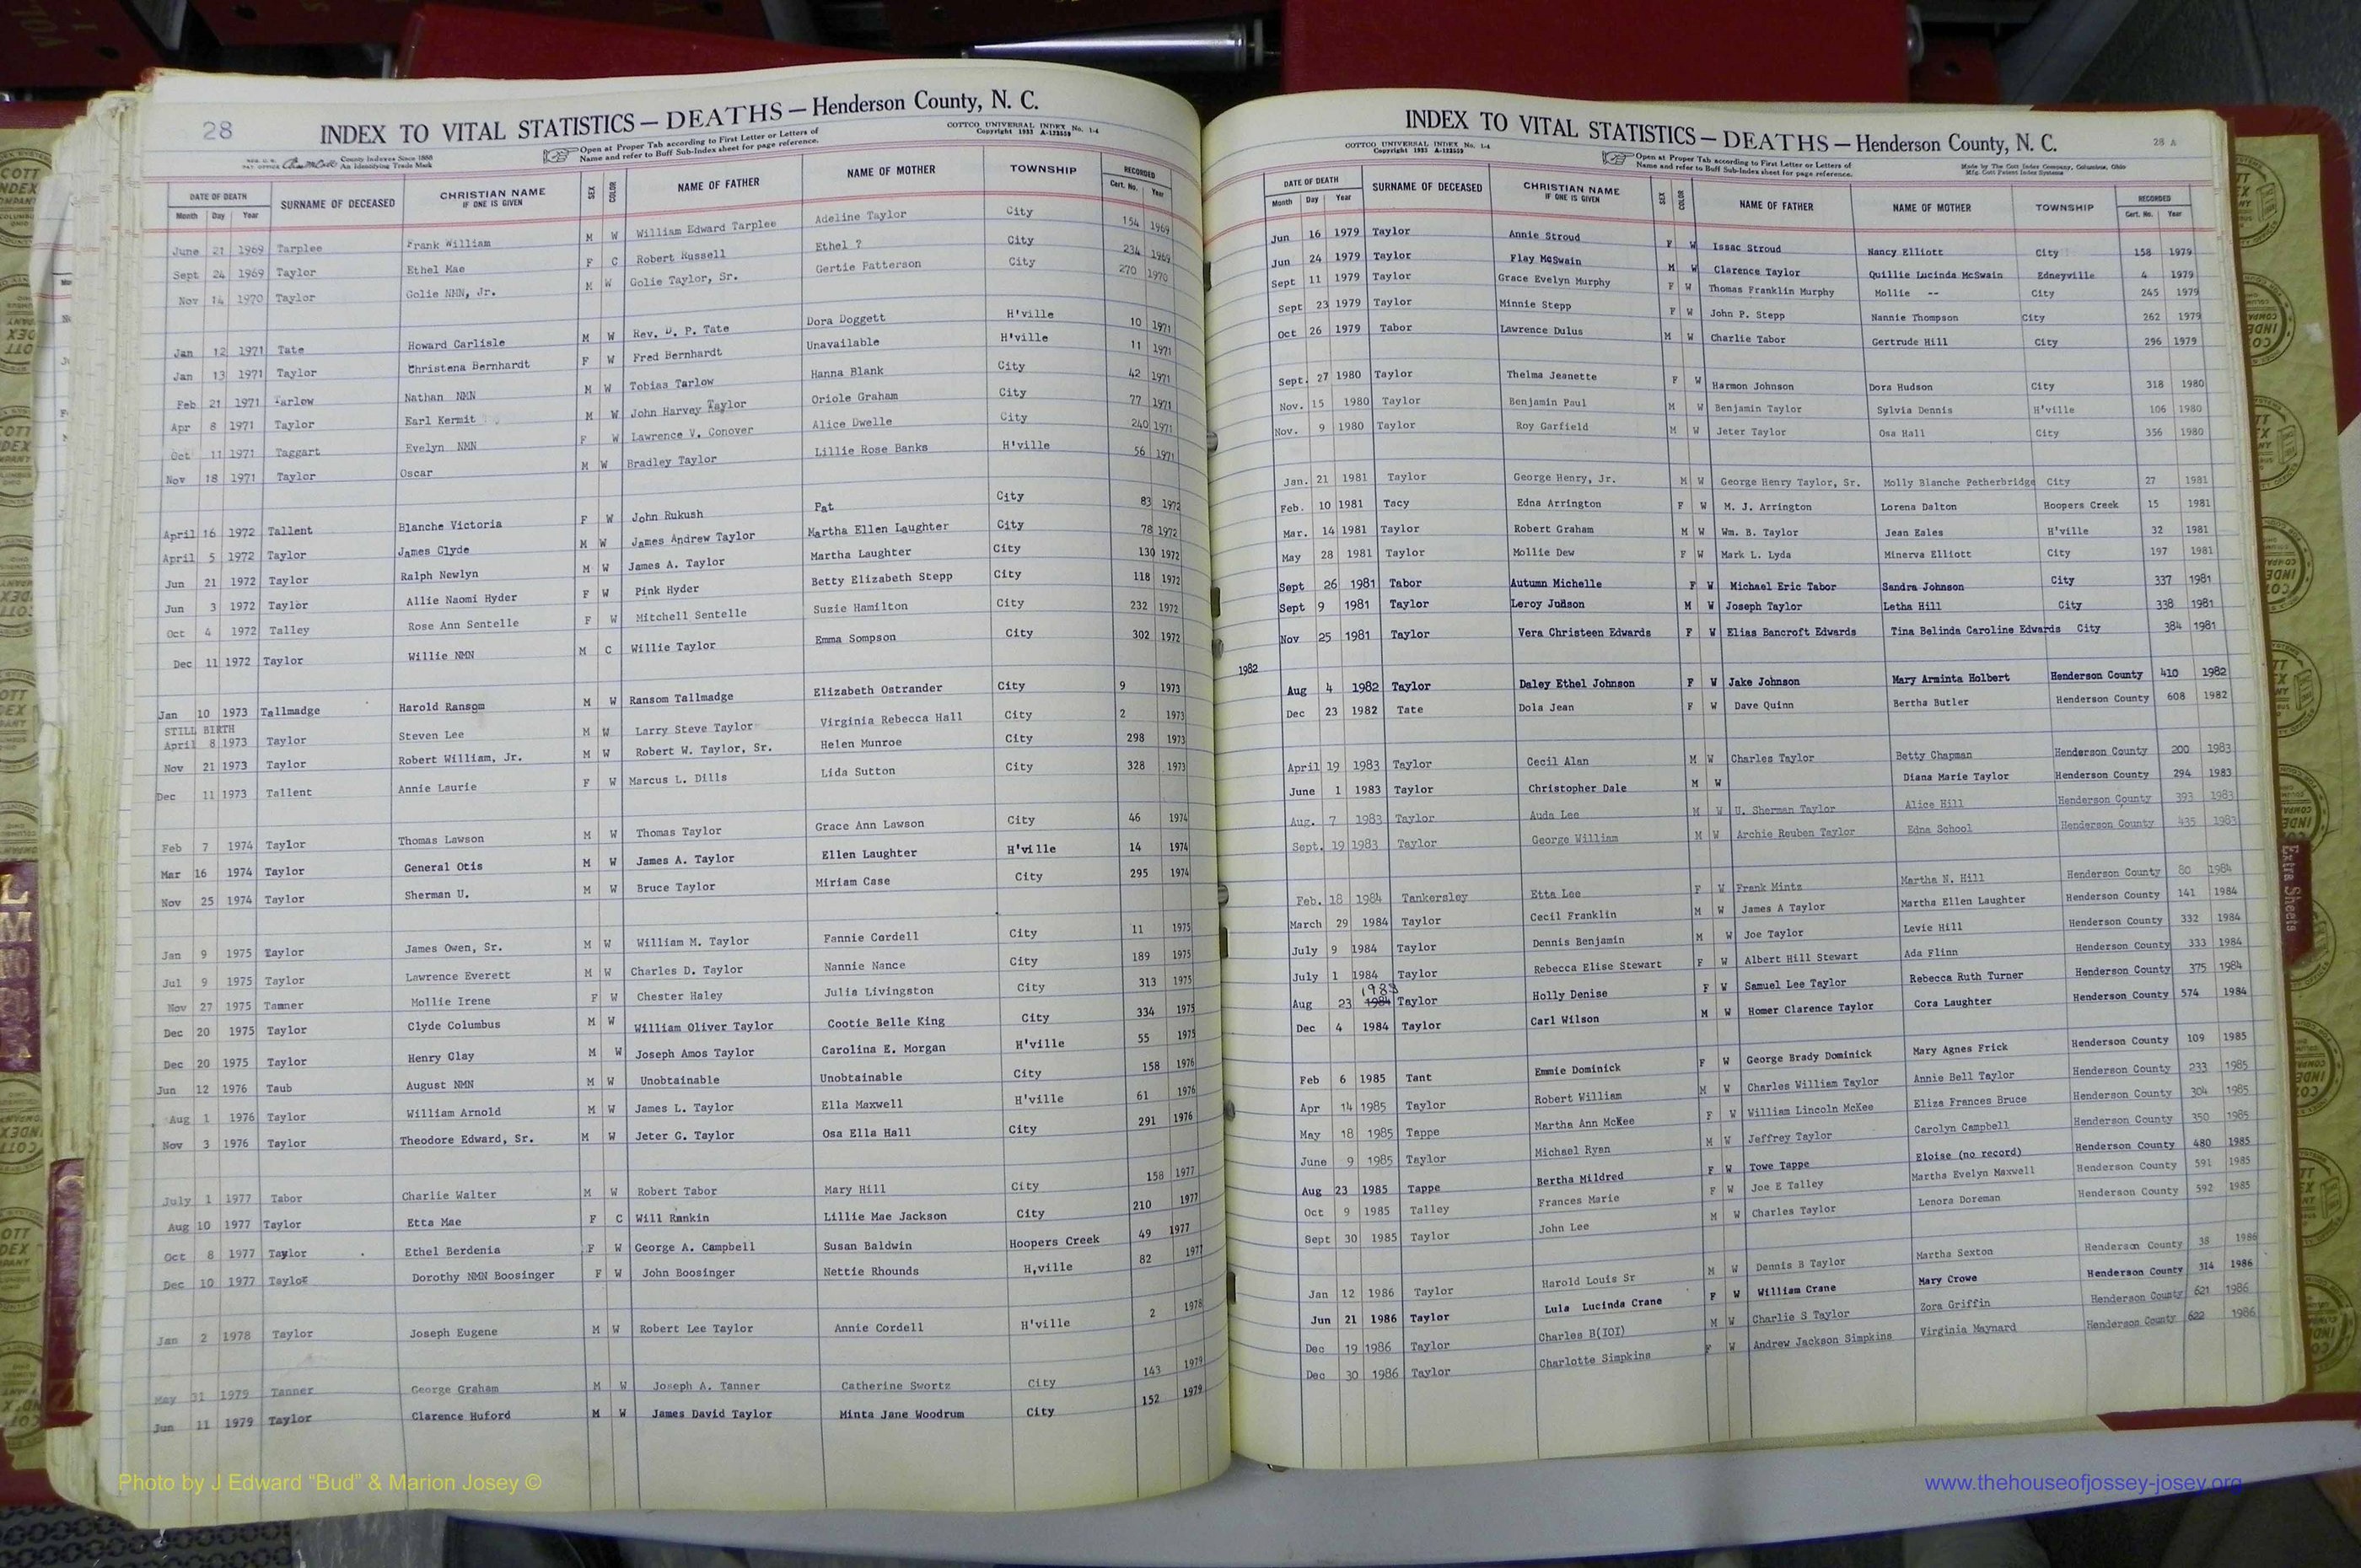 28
INDEX TO VITAL STATISTICS — DEATHS — Henderson County, N. C.
County Indexes Since 1888
An Identifying Trade Mark
Open at Proper Tab according to First Letter or Letters of
Name and refer to Buff Sub-Index sheet for page reference.
COTTCO UNIVERSAL INDEX No. 1-4
Copyright 1933 A-123559
DATE OF DEATH SURNAME OF DECEASED CHRISTIAN NAME IF ONE IS GIVEN SEX COLOR NAME OF FATHER NAME OF MOTHER TOWNSHIP RECORDED
Month Day Year Cert. No. Year
June 21 1969 Tarplee Frank William M W William Edward Tarplee Adeline Taylor City 154 1969
Sept 24 1969 Taylor Ethel Mae F C Robert Russell Ethel ? City 234 1969
Nov 14 1970 Taylor Golie NMN, Jr. M W Golie Taylor, Sr. Gertie Patterson City 270 1970
Jan 12 1971 Tate Howard Carlisle M W Rev. D. P. Tate Dora Doggett H'ville 10 1971
Jan 13 1971 Taylor Christena Bernhardt F W Fred Bernhardt Unavailable H'ville 11 1971
Feb 21 1971 Tarlow Nathan NMN M W Tobias Tarlow Hanna Blank City 42 1971
Apr 8 1971 Taylor Earl Kermit M W John Harvey Taylor Oriole Graham City 77 1971
Oct 11 1971 Taggart Evelyn NMN F W Lawrence V. Conover Alice Dwelle City 240 1971
Nov 18 1971 Taylor Oscar M W Bradley Taylor Lillie Rose Banks H'ville 56 1971
April 16 1972 Tallent Blanche Victoria F W John Rukush Pat City 83 1972
April 5 1972 Taylor James Clyde M W James Andrew Taylor Martha Ellen Laughter City 78 1972
Jun 21 1972 Taylor Ralph Newlyn M W James A. Taylor Martha Laughter City 130 1972
Jun 3 1972 Taylor Allie Naomi Hyder F W Pink Hyder Betty Elizabeth Stepp City 118 1972
Oct 4 1972 Talley Rose Ann Sentelle F W Mitchell Sentelle Suzie Hamilton City 232 1972
Dec 11 1972 Taylor Willie NMN M C Willie Taylor Emma Sompson City 302 1972
Jan 10 1973 Tallmadge Harold Ransom M W Ransom Tallmadge Elizabeth Ostrander City 9 1973
STILL BIRTH
April 8 1973 Taylor Steven Lee M W Larry Steve Taylor Virginia Rebecca Hall City 2 1973
Nov 21 1973 Taylor Robert William, Jr. M W Robert W. Taylor, Sr. Helen Munroe City 298 1973
Dec 11 1973 Tallent Annie Laurie F W Marcus L. Dills Lida Sutton City 328 1973
Feb 7 1974 Taylor Thomas Lawson M W Thomas Taylor Grace Ann Lawson City 46 1974
Mar 16 1974 Taylor General Otis M W James A. Taylor Ellen Laughter H'ville 14 1974
Nov 25 1974 Taylor Sherman U. M W Bruce Taylor Miriam Case City 295 1974
Jan 9 1975 Taylor James Owen, Sr. M W William M. Taylor Fannie Cordell City 11 1975
Jul 9 1975 Taylor Lawrence Everett M W Charles D. Taylor Nannie Nance City 189 1975
Nov 27 1975 Tanner Mollie Irene F W Chester Haley Julia Livingston City 313 1975
Dec 20 1975 Taylor Clyde Columbus M W William Oliver Taylor Cootie Belle King City 334 1975
Dec 20 1975 Taylor Henry Clay M W Joseph Amos Taylor Carolina E. Morgan H'ville 55 1975
Jun 12 1976 Taub August NMN M W Unobtainable Unobtainable City 158 1976
Aug 1 1976 Taylor William Arnold M W James L. Taylor Ella Maxwell H'ville 61 1976
Nov 3 1976 Taylor Theodore Edward, Sr. M W Jeter G. Taylor Osa Ella Hall City 291 1976
July 1 1977 Tabor Charlie Walter M W Robert Tabor Mary Hill City 158 1977
Aug 10 1977 Taylor Etta Mae F C Will Rankin Lillie Mae Jackson City 210 1977
Oct 8 1977 Taylor Ethel Berdenia F W George A. Campbell Susan Baldwin Hoopers Creek 49 1977
Dec 10 1977 Taylor Dorothy NMN Boosinger F W John Boosinger Nettie Rhounds H,ville 82 1977
Jan 2 1978 Taylor Joseph Eugene M W Robert Lee Taylor Annie Cordell H'ville 2 1978
May 31 1979 Tanner George Graham M W Joseph A. Tanner Catherine Swortz City 143 1979
Jun 11 1979 Taylor Clarence Huford M W James David Taylor Minta Jane Woodrum City 152 1979
INDEX TO VITAL STATISTICS — DEATHS — Henderson County, N. C.
28 A
COTTCO UNIVERSAL INDEX No. 1-4
Copyright 1933 A-123559
Open at Proper Tab according to First Letter or Letters of
Name and refer to Buff Sub-Index sheet for page reference.
Made by The Cott Index Company, Columbus, Ohio
Mfg. Cott Patent Index Systems
DATE OF DEATH SURNAME OF DECEASED CHRISTIAN NAME IF ONE IS GIVEN SEX COLOR NAME OF FATHER NAME OF MOTHER TOWNSHIP RECORDED
Month Day Year Cert. No. Year
Jun 16 1979 Taylor Annie Stroud F W Issac Stroud Nancy Elliott City 158 1979
Jun 24 1979 Taylor Flay McSwain M W Clarence Taylor Quillie Lucinda McSwain Edneyville 4 1979
Sept 11 1979 Taylor Grace Evelyn Murphy F W Thomas Franklin Murphy Mollie -- City 245 1979
Sept 23 1979 Taylor Minnie Stepp F W John P. Stepp Nannie Thompson City 262 1979
Oct 26 1979 Tabor Lawrence Dulus M W Charlie Tabor Gertrude Hill City 296 1979
Sept. 27 1980 Taylor Thelma Jeanette F W Harmon Johnson Dora Hudson City 318 1980
Nov. 15 1980 Taylor Benjamin Paul M W Benjamin Taylor Sylvia Dennis H'ville 106 1980
Nov. 9 1980 Taylor Roy Garfield M W Jeter Taylor Osa Hall City 356 1980
Jan. 21 1981 Taylor George Henry, Jr. M W George Henry Taylor, Sr. Molly Blanche Petherbridge City 27 1981
Feb. 10 1981 Tacy Edna Arrington F W M. J. Arrington Lorena Dalton Hoopers Creek 15 1981
Mar. 14 1981 Taylor Robert Graham M W Wm. B. Taylor Jean Eales H'ville 32 1981
May 28 1981 Taylor Mollie Dew F W Mark L. Lyda Minerva Elliott City 197 1981
Sept 26 1981 Tabor Autumn Michelle F W Michael Eric Tabor Sandra Johnson City 337 1981
Sept 9 1981 Taylor Leroy Judson M W Joseph Taylor Letha Hill City 338 1981
Nov 25 1981 Taylor Vera Christeen Edwards F W Elias Bancroft Edwards Tina Belinda Caroline Edwards City 384 1981
1982
Aug 4 1982 Taylor Daley Ethel Johnson F W Jake Johnson Mary Arminta Holbert Henderson County 410 1982
Dec 23 1982 Tate Dola Jean F W Dave Quinn Bertha Butler Henderson County 608 1982
April 19 1983 Taylor Cecil Alan M W Charles Taylor Betty Chapman Henderson County 200 1983
June 1 1983 Taylor Christopher Dale M W Diana Marie Taylor Henderson County 294 1983
Aug. 7 1983 Taylor Auda Lee M W U. Sherman Taylor Alice Hill Henderson County 393 1983
Sept. 19 1983 Taylor George William M W Archie Reuben Taylor Edna School Henderson County 435 1983
Feb. 18 1984 Tankersley Etta Lee F W Frank Mintz Martha N. Hill Henderson County 80 1984
March 29 1984 Taylor Cecil Franklin M W James A Taylor Martha Ellen Laughter Henderson County 141 1984
July 9 1984 Taylor Dennis Benjamin M W Joe Taylor Levie Hill Henderson County 332 1984
July 1 1984 Taylor Rebecca Elise Stewart F W Albert Hill Stewart Ada Flinn Henderson County 333 1984
1983
Aug 23 1984 Taylor Holly Denise F W Samuel Lee Taylor Rebecca Ruth Turner Henderson County 375 1984
Dec 4 1984 Taylor Carl Wilson M W Homer Clarence Taylor Cora Laughter Henderson County 574 1984
Feb 6 1985 Tant Emmie Dominick F W George Brady Dominick Mary Agnes Frick Henderson County 109 1985
Apr 14 1985 Taylor Robert William M W Charles William Taylor Annie Bell Taylor Henderson County 233 1985
May 18 1985 Tappe Martha Ann McKee F W William Lincoln McKee Eliza Frances Bruce Henderson County 304 1985
June 9 1985 Taylor Michael Ryan M W Jeffrey Taylor Carolyn Campbell Henderson County 350 1985
Aug 23 1985 Tappe Bertha Mildred F W Towe Tappe Eloise (no record) Henderson County 480 1985
Oct 9 1985 Talley Frances Marie F W Joe E Talley Martha Evelyn Maxwell Henderson County 591 1985
Sept 30 1985 Taylor John Lee M W Charles Taylor Lenora Doreman Henderson County 592 1985
Jan 12 1986 Taylor Harold Louis Sr M W Dennis B Taylor Martha Sexton Henderson County 38 1986
Jun 21 1986 Taylor Lula Lucinda Crane F W William Crane Mary Crowe Henderson County 314 1986
Dec 19 1986 Taylor Charles B(IOI) M W Charlie S Taylor Zora Griffin Henderson County 621 1986
Dec 30 1986 Taylor Charlotte Simpkins F W Andrew Jackson Simpkins Virginia Maynard Henderson County 622 1986
Extra Sheets
Photo by J Edward “Bud” & Marion Josey ©
www.thehouseofjossey-josey.org